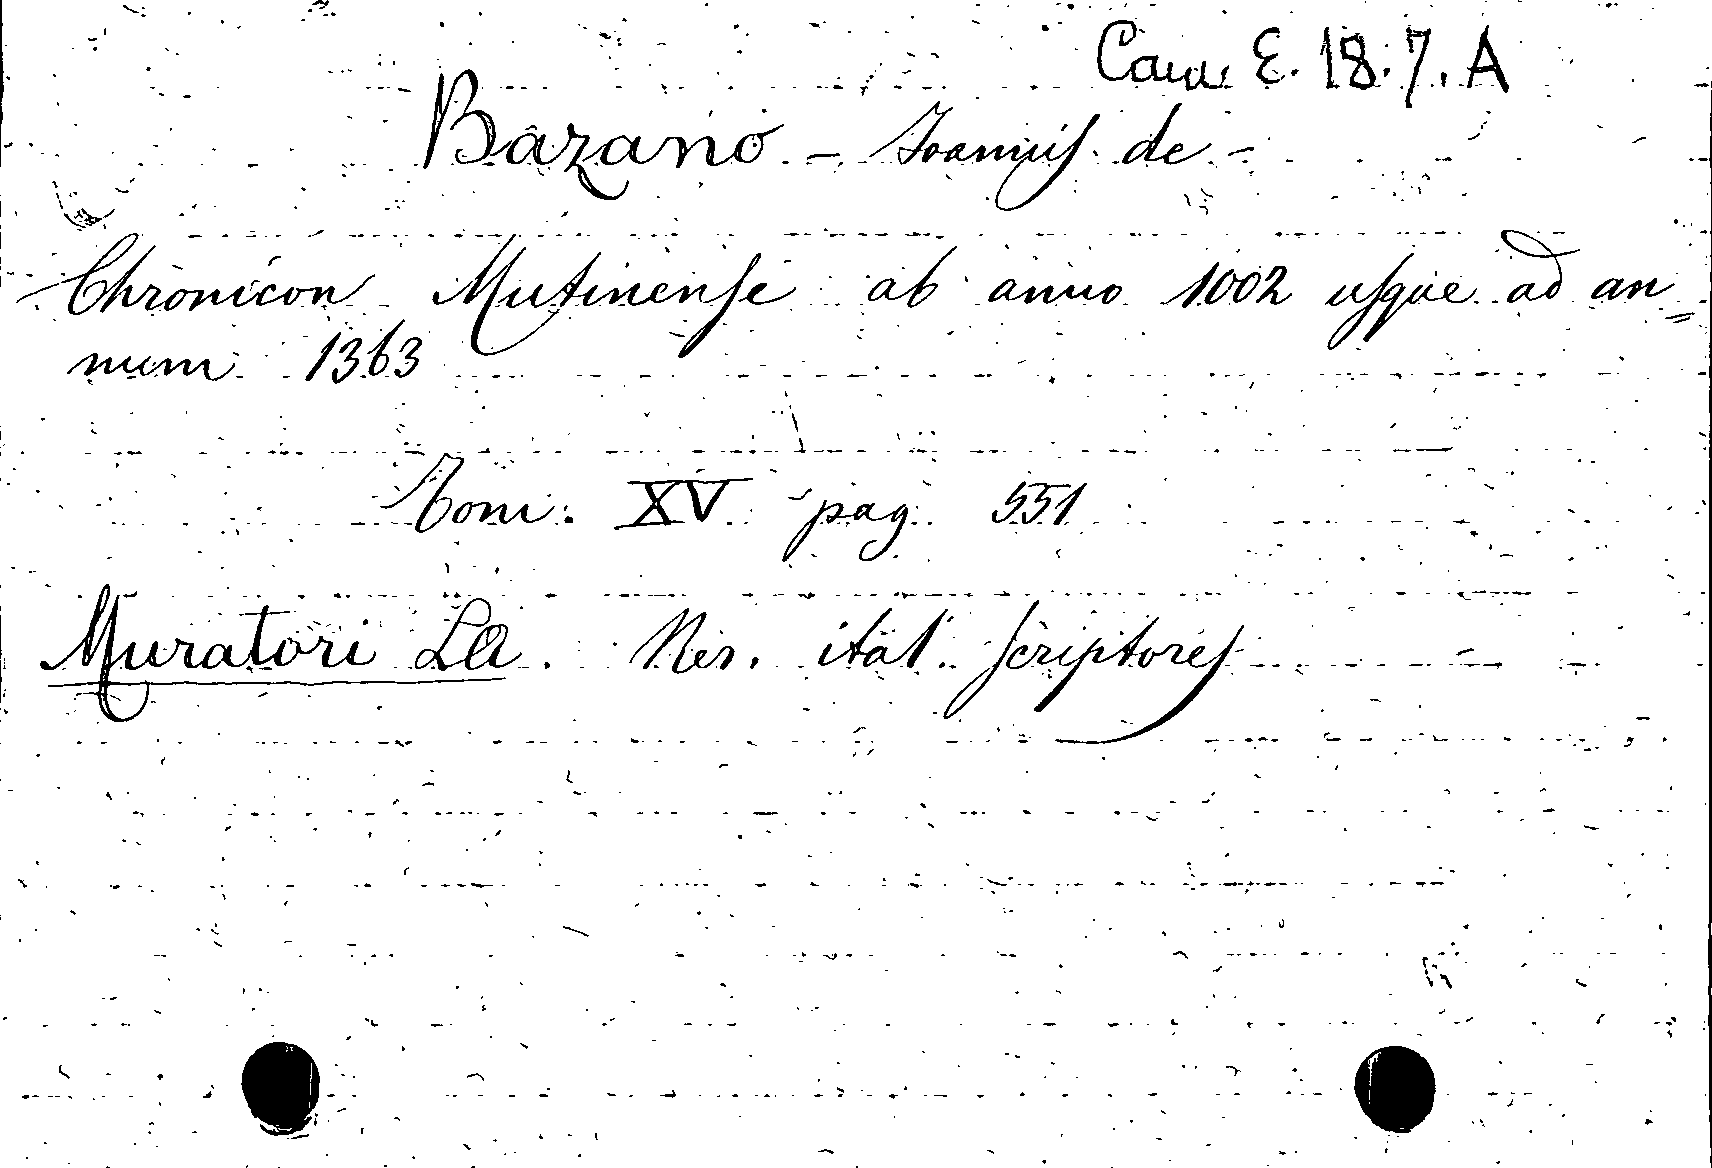 Cam. E. 18.7. A
Bazano - Joannis de -
Chronicon Mutinense ab anno 1002 usque ad an=
num 1363
Tom. XV pag. 551
Muratori LA. Rer. ital. scriptores